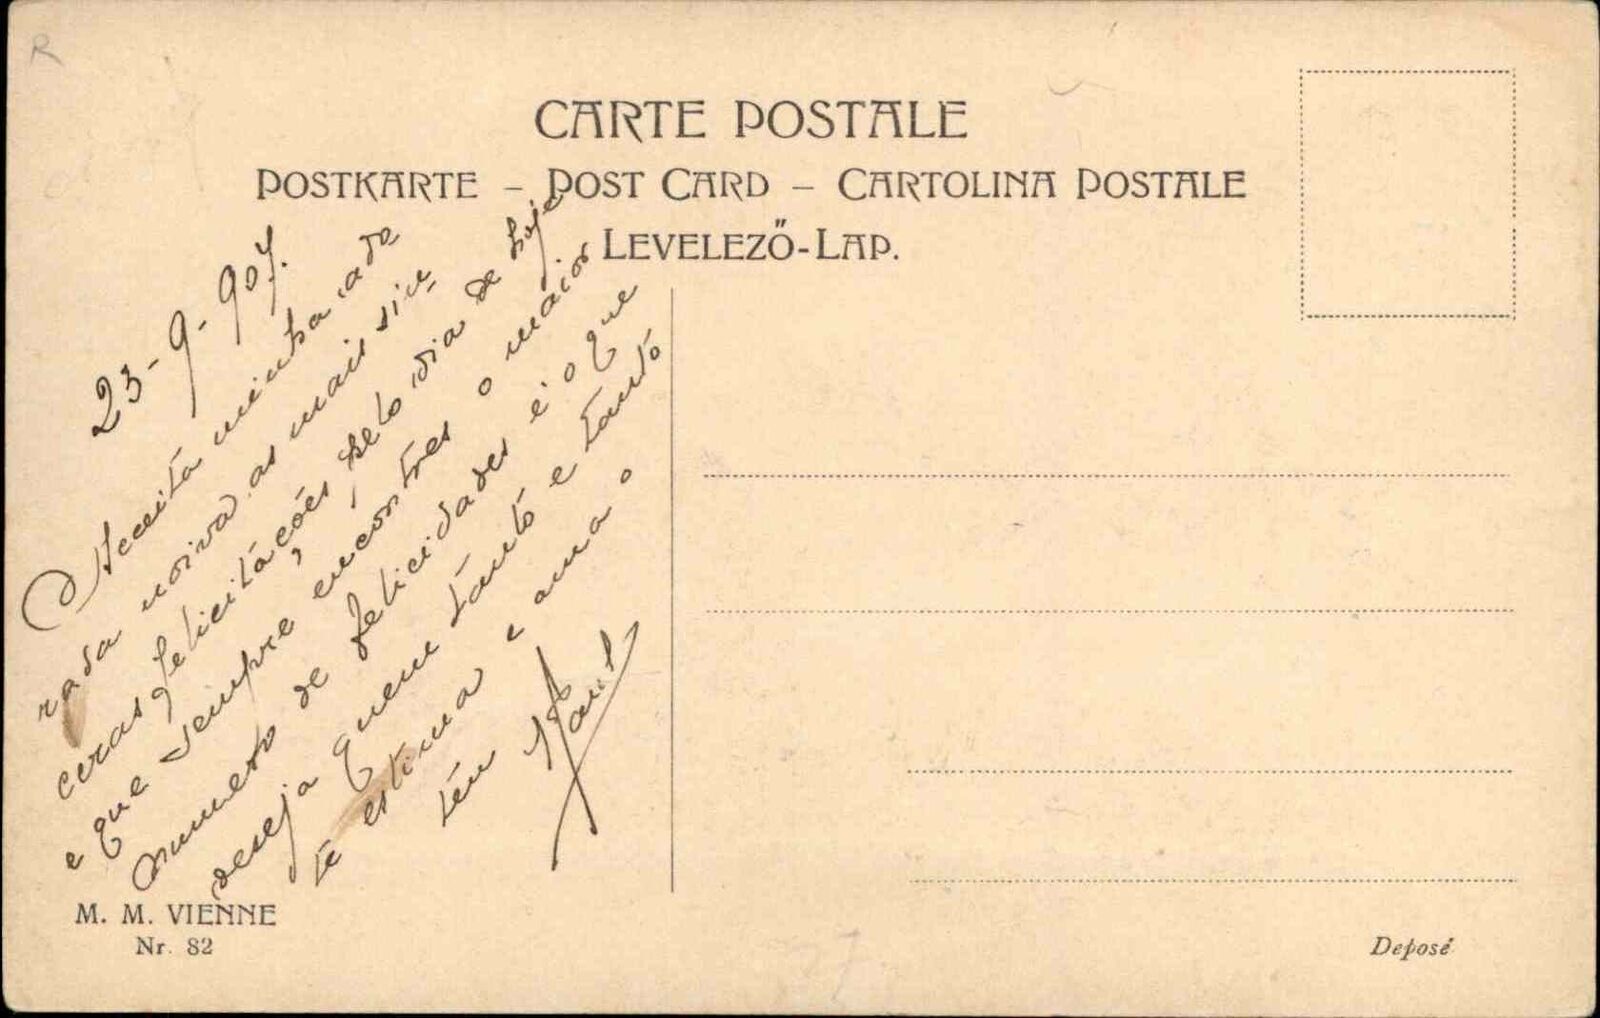 R
CARTE POSTALE
POSTKARTE – POST CARD – CARTOLINA POSTALE
LEVELEZŐ-LAP.
23-9-907.
Acceita minha ado
rada noiva as mais sin
ceras felicitações pelo dia de hoje
e que sempre encontres o maior
numero de felicidades é o que
deseja quem tanto e tanto
te estima e ama o
teu
M. M. VIENNE
Nr. 82
Deposé